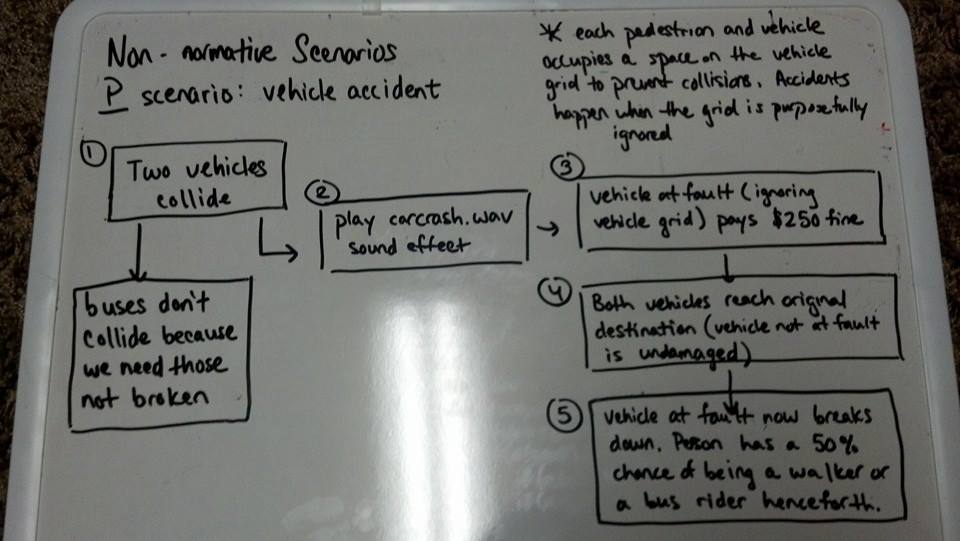 Non-normative Scenarios
P scenario: vehicle accident
* each pedestrian and vehicle
occupies a space on the vehicle
grid to prevent collisions. Accidents
happen when the grid is purposefully
ignored
① Two vehicles
collide
buses don't
collide because
we need those
not broken
② play carcrash.wav
sound effect
③ vehicle at fault (ignoring
vehicle grid) pays $250 fine
④ Both vehicles reach original
destination (vehicle not at fault
is undamaged)
⑤ vehicle at fault now breaks
down. Person has a 50%
chance of being a walker or
a bus rider henceforth.